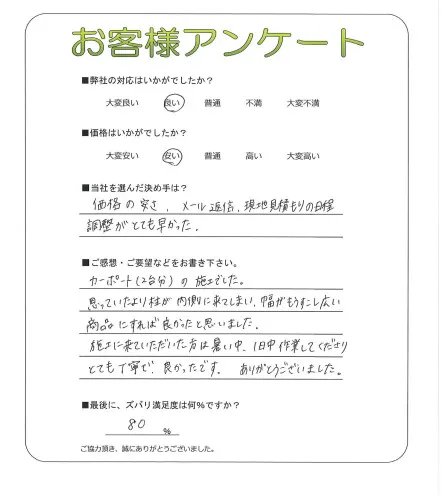 お客様アンケート
■弊社の対応はいかがでしたか？
大変良い 良い 普通 不満 大変不満
■価格はいかがでしたか？
大変安い 安い 普通 高い 大変高い
■当社を選んだ決め手は？
価格の安さ、メール返信、現地見積もりの日程
調整がとても早かった。
■ご感想・ご要望などをお書き下さい。
カーポート(2台分)の施工でした。
思っていたより柱が内側に来てしまい、幅がもうすこし広い
商品にすれば良かったと思いました。
施工に来ていただいた方は暑い中、1日中作業してくださり
とても丁寧で、良かったです。ありがとうございました。
■最後に、ズバリ満足度は何％ですか？
80 ％
ご協力頂き、誠にありがとうございました。